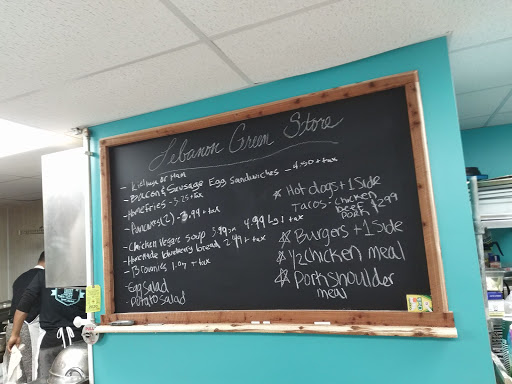 Lebanon Green Store
- Kielbasa or Ham
- Bacon & Sausage Egg Sandwiches - 4.50 + tax
- Homefries - 3.25 + tax
- Pancakes (2) - 3.99 + tax
- Chicken Veggie Soup 3.99 sm 4.99 Lg + tax
- Homemade blueberry bread 2.99 + tax
- Brownies 1.09 + tax
- Egg salad
- Potato salad
☆ Hot dogs + 1 Side
Tacos - Chicken
beef $2.99
Pork
☆ Burgers + 1 Side
☆ 1/2 Chicken meal
☆ Porkshoulder
meal